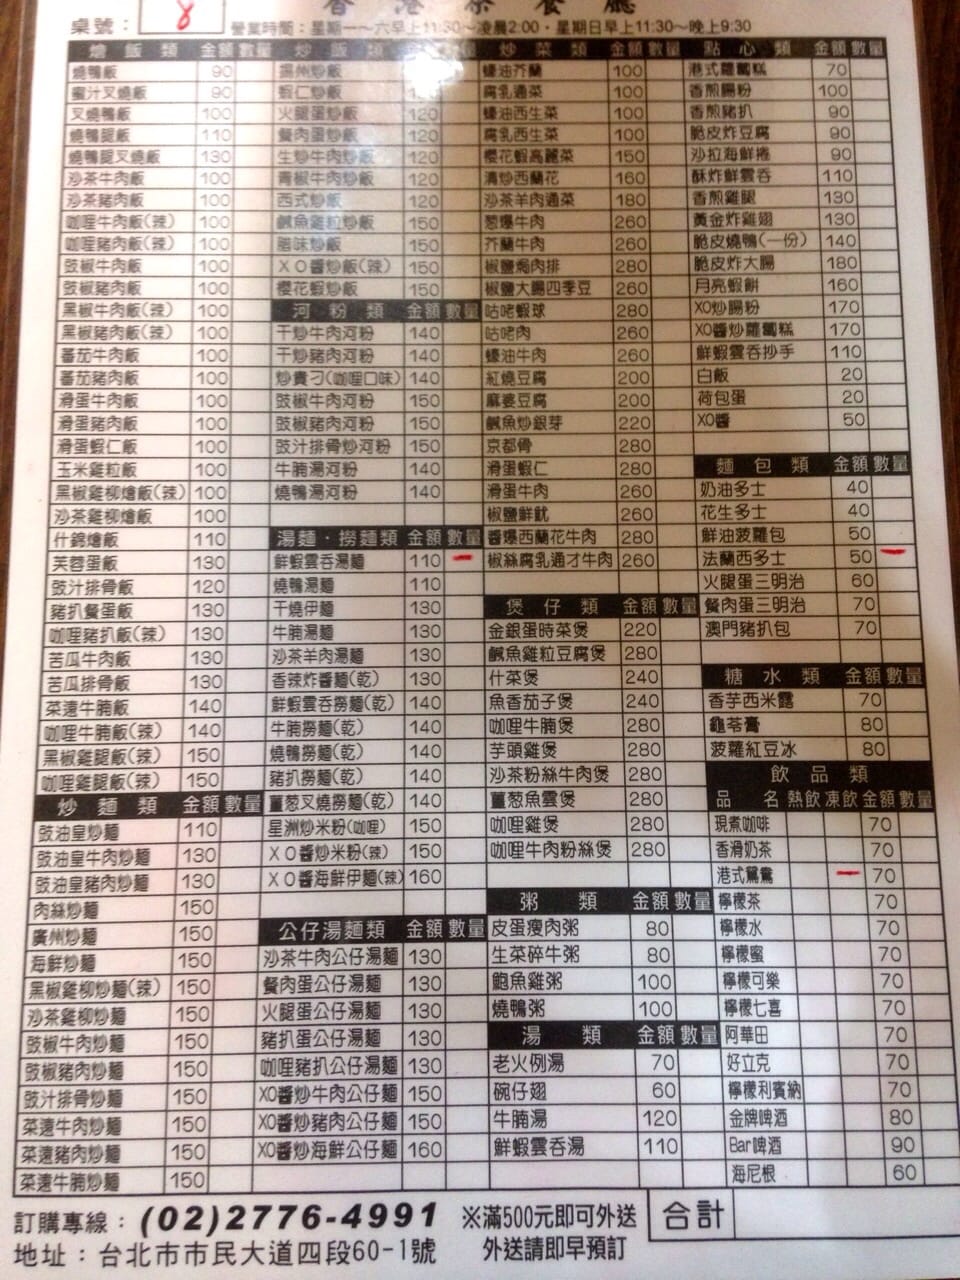 香港茶餐廳
桌號: 8 營業時間:星期一~六早上11:30~凌晨2:00‧星期日早上11:30~晚上9:30
燴飯類 金額 數量
燒鴨飯 90
蜜汁叉燒飯 90
叉燒鴨飯 100
燒鴨腿飯 110
燒鴨腿叉燒飯 130
沙茶牛肉飯 100
沙茶豬肉飯 100
咖哩牛肉飯(辣) 100
咖哩豬肉飯(辣) 100
豉椒牛肉飯 100
豉椒豬肉飯 100
黑椒牛肉飯(辣) 100
黑椒豬肉飯(辣) 100
蕃茄牛肉飯 100
蕃茄豬肉飯 100
滑蛋牛肉飯 100
滑蛋豬肉飯 100
滑蛋蝦仁飯 100
玉米雞粒飯 100
黑椒雞柳燴飯(辣) 100
沙茶雞柳燴飯 100
什錦燴飯 110
芙蓉蛋飯 130
豉汁排骨飯 120
豬扒餐蛋飯 130
咖哩豬扒飯(辣) 130
苦瓜牛肉飯 130
苦瓜排骨飯 130
菜遠牛腩飯 140
咖哩牛腩飯(辣) 140
黑椒雞腿飯(辣) 150
咖哩雞腿飯(辣) 150
炒麵類 金額 數量
豉油皇炒麵 110
豉油皇牛肉炒麵 130
豉油皇豬肉炒麵 130
肉絲炒麵 150
廣州炒麵 150
海鮮炒麵 150
黑椒雞柳炒麵(辣) 150
沙茶雞柳炒麵 150
豉椒牛肉炒麵 150
豉椒豬肉炒麵 150
豉汁排骨炒麵 150
菜遠牛肉炒麵 150
菜遠豬肉炒麵 150
菜遠牛腩炒麵 150
炒飯類 金額 數量
揚州炒飯
蝦仁炒飯
火腿蛋炒飯 120
餐肉蛋炒飯 120
生炒牛肉炒飯 120
青椒牛肉炒飯 120
西式炒飯 120
鹹魚雞粒炒飯 150
臘味炒飯 150
XO醬炒飯(辣) 150
櫻花蝦炒飯 150
河粉類 金額 數量
干炒牛肉河粉 140
干炒豬肉河粉 140
炒貴刁(咖哩口味) 140
豉椒牛肉河粉 150
豉椒豬肉河粉 150
豉汁排骨炒河粉 150
牛腩湯河粉 140
燒鴨湯河粉 140
湯麵‧撈麵類 金額 數量
鮮蝦雲吞湯麵 110 一
燒鴨湯麵 110
干燒伊麵 130
牛腩湯麵 130
沙茶羊肉湯麵 130
香辣炸醬麵(乾) 130
鮮蝦雲吞撈麵(乾) 140
牛腩撈麵(乾) 140
燒鴨撈麵(乾) 140
豬扒撈麵(乾) 140
薑葱叉燒撈麵(乾) 140
星洲炒米粉(咖哩) 150
XO醬炒米粉(辣) 150
XO醬海鮮伊麵(辣) 160
公仔湯麵類 金額 數量
沙茶牛肉公仔湯麵 130
餐肉蛋公仔湯麵 130
火腿蛋公仔湯麵 130
豬扒蛋公仔湯麵 130
咖哩豬扒公仔湯麵 130
XO醬炒牛肉公仔麵 150
XO醬炒豬肉公仔麵 150
XO醬炒海鮮公仔麵 160
炒菜類 金額 數量
蠔油芥蘭 100
腐乳通菜 100
蠔油西生菜 100
腐乳西生菜 100
櫻花蝦高麗菜 150
清炒西蘭花 160
沙茶羊肉通菜 180
葱爆牛肉 260
芥蘭牛肉 260
椒鹽焗肉排 280
椒鹽大腸四季豆 260
咕咾蝦球 280
咕咾肉 260
蠔油牛肉 260
紅燒豆腐 200
麻婆豆腐 200
鹹魚炒銀芽 220
京都骨 280
滑蛋蝦仁 280
滑蛋牛肉 260
椒鹽鮮魷 260
醬爆西蘭花牛肉 280
椒絲腐乳通才牛肉 260
煲仔類 金額 數量
金銀蛋時菜煲 220
鹹魚雞粒豆腐煲 280
什菜煲 240
魚香茄子煲 240
咖哩牛腩煲 280
芋頭雞煲 280
沙茶粉絲牛肉煲 280
薑葱魚雲煲 280
咖哩雞煲 280
咖哩牛肉粉絲煲 280
粥類 金額 數量
皮蛋瘦肉粥 80
生菜碎牛粥 80
鮑魚雞粥 100
燒鴨粥 100
湯類 金額 數量
老火例湯 70
碗仔翅 60
牛腩湯 120
鮮蝦雲吞湯 110
點心類 金額 數量
港式蘿蔔糕 70
香煎腸粉 100
香煎豬扒 90
脆皮炸豆腐 90
沙拉海鮮捲 90
酥炸鮮雲吞 110
香煎雞腿 130
黃金炸雞翅 130
脆皮燒鴨(一份) 140
脆皮炸大腸 180
月亮蝦餅 160
XO炒腸粉 170
XO醬炒蘿蔔糕 170
鮮蝦雲吞抄手 110
白飯 20
荷包蛋 20
XO醬 50
麵包類 金額 數量
奶油多士 40
花生多士 40
鮮油菠蘿包 50
法蘭西多士 50 一
火腿蛋三明治 60
餐肉蛋三明治 70
澳門豬扒包 70
糖水類 金額 數量
香芋西米露 70
龜苓膏 80
菠蘿紅豆冰 80
飲品類
品名 熱飲 凍飲 金額 數量
現煮咖啡 70
香滑奶茶 70
港式鴛鴦 一 70
檸檬茶 70
檸檬水 70
檸檬蜜 70
檸檬可樂 70
檸檬七喜 70
阿華田 70
好立克 70
檸檬利賓納 70
金牌啤酒 80
Bar啤酒 90
海尼根 60
訂購專線:(02)2776-4991 ※滿500元即可外送 合計
地址:台北市市民大道四段60-1號 外送請即早預訂